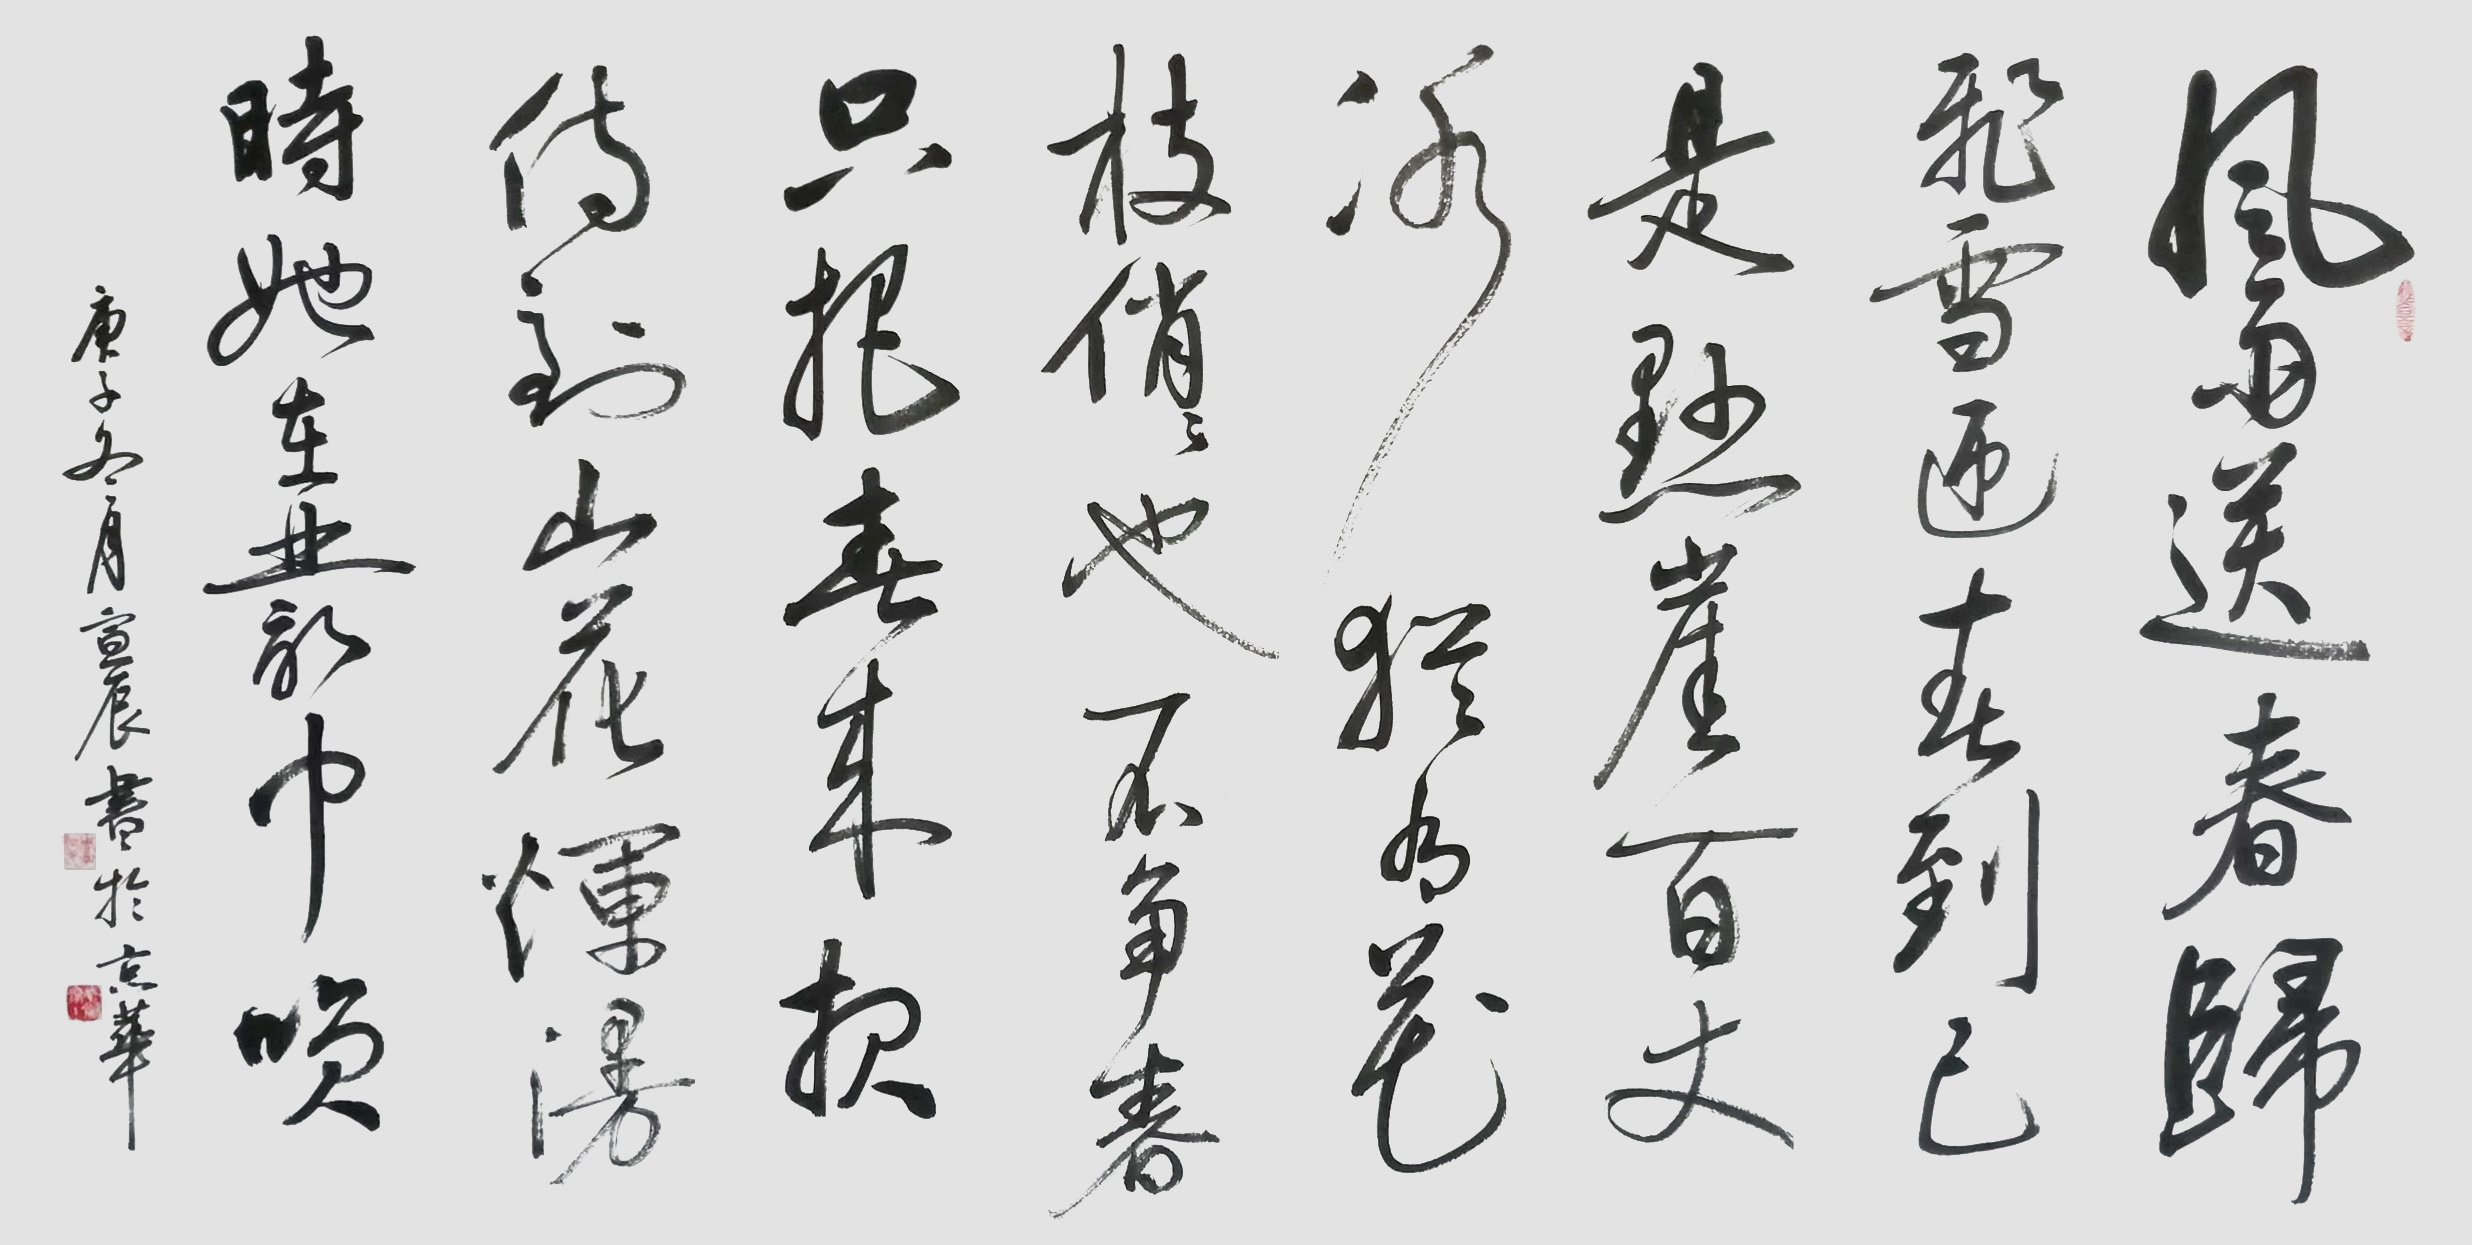 風雨送春歸
飛雪迎春到已
是懸崖百丈
冰猶有花
枝俏〻也不争春
只把春来報
待到山花爛漫
時她在叢中咲
庚子冬月宣辰書於京華